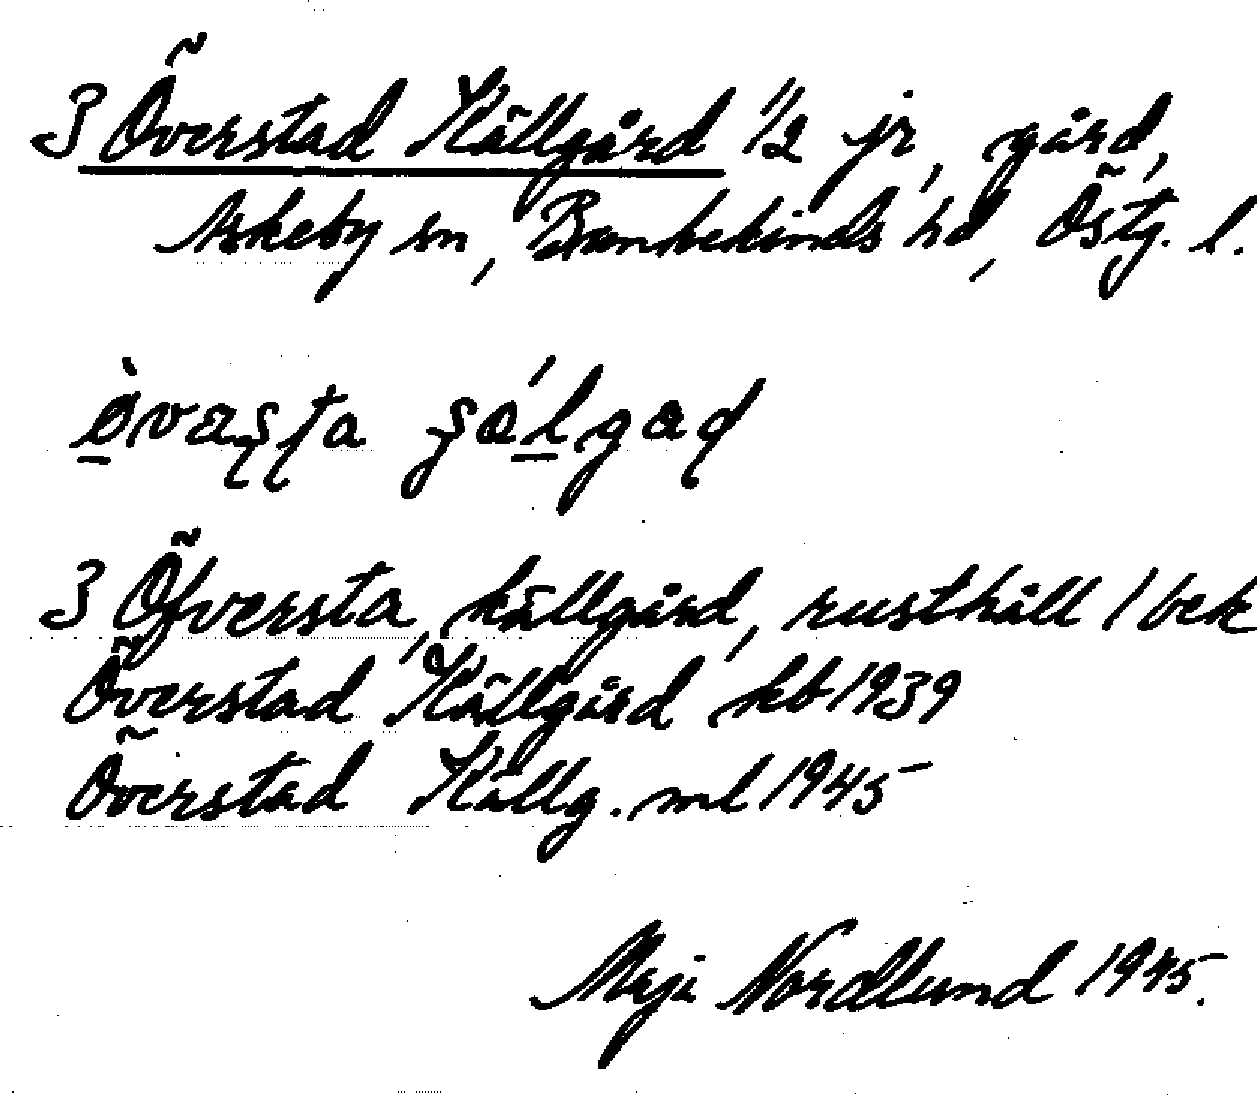 3 Överstad Källgård 1/2 jr, gård,
Askeby sn, Bankekinds hd, Östg. l.
3 Öfversta, källgård, rusthåll 1 bek
Överstad Källgård kb 1939
Överstad Källg. ml 1945
Nordlund 1945.